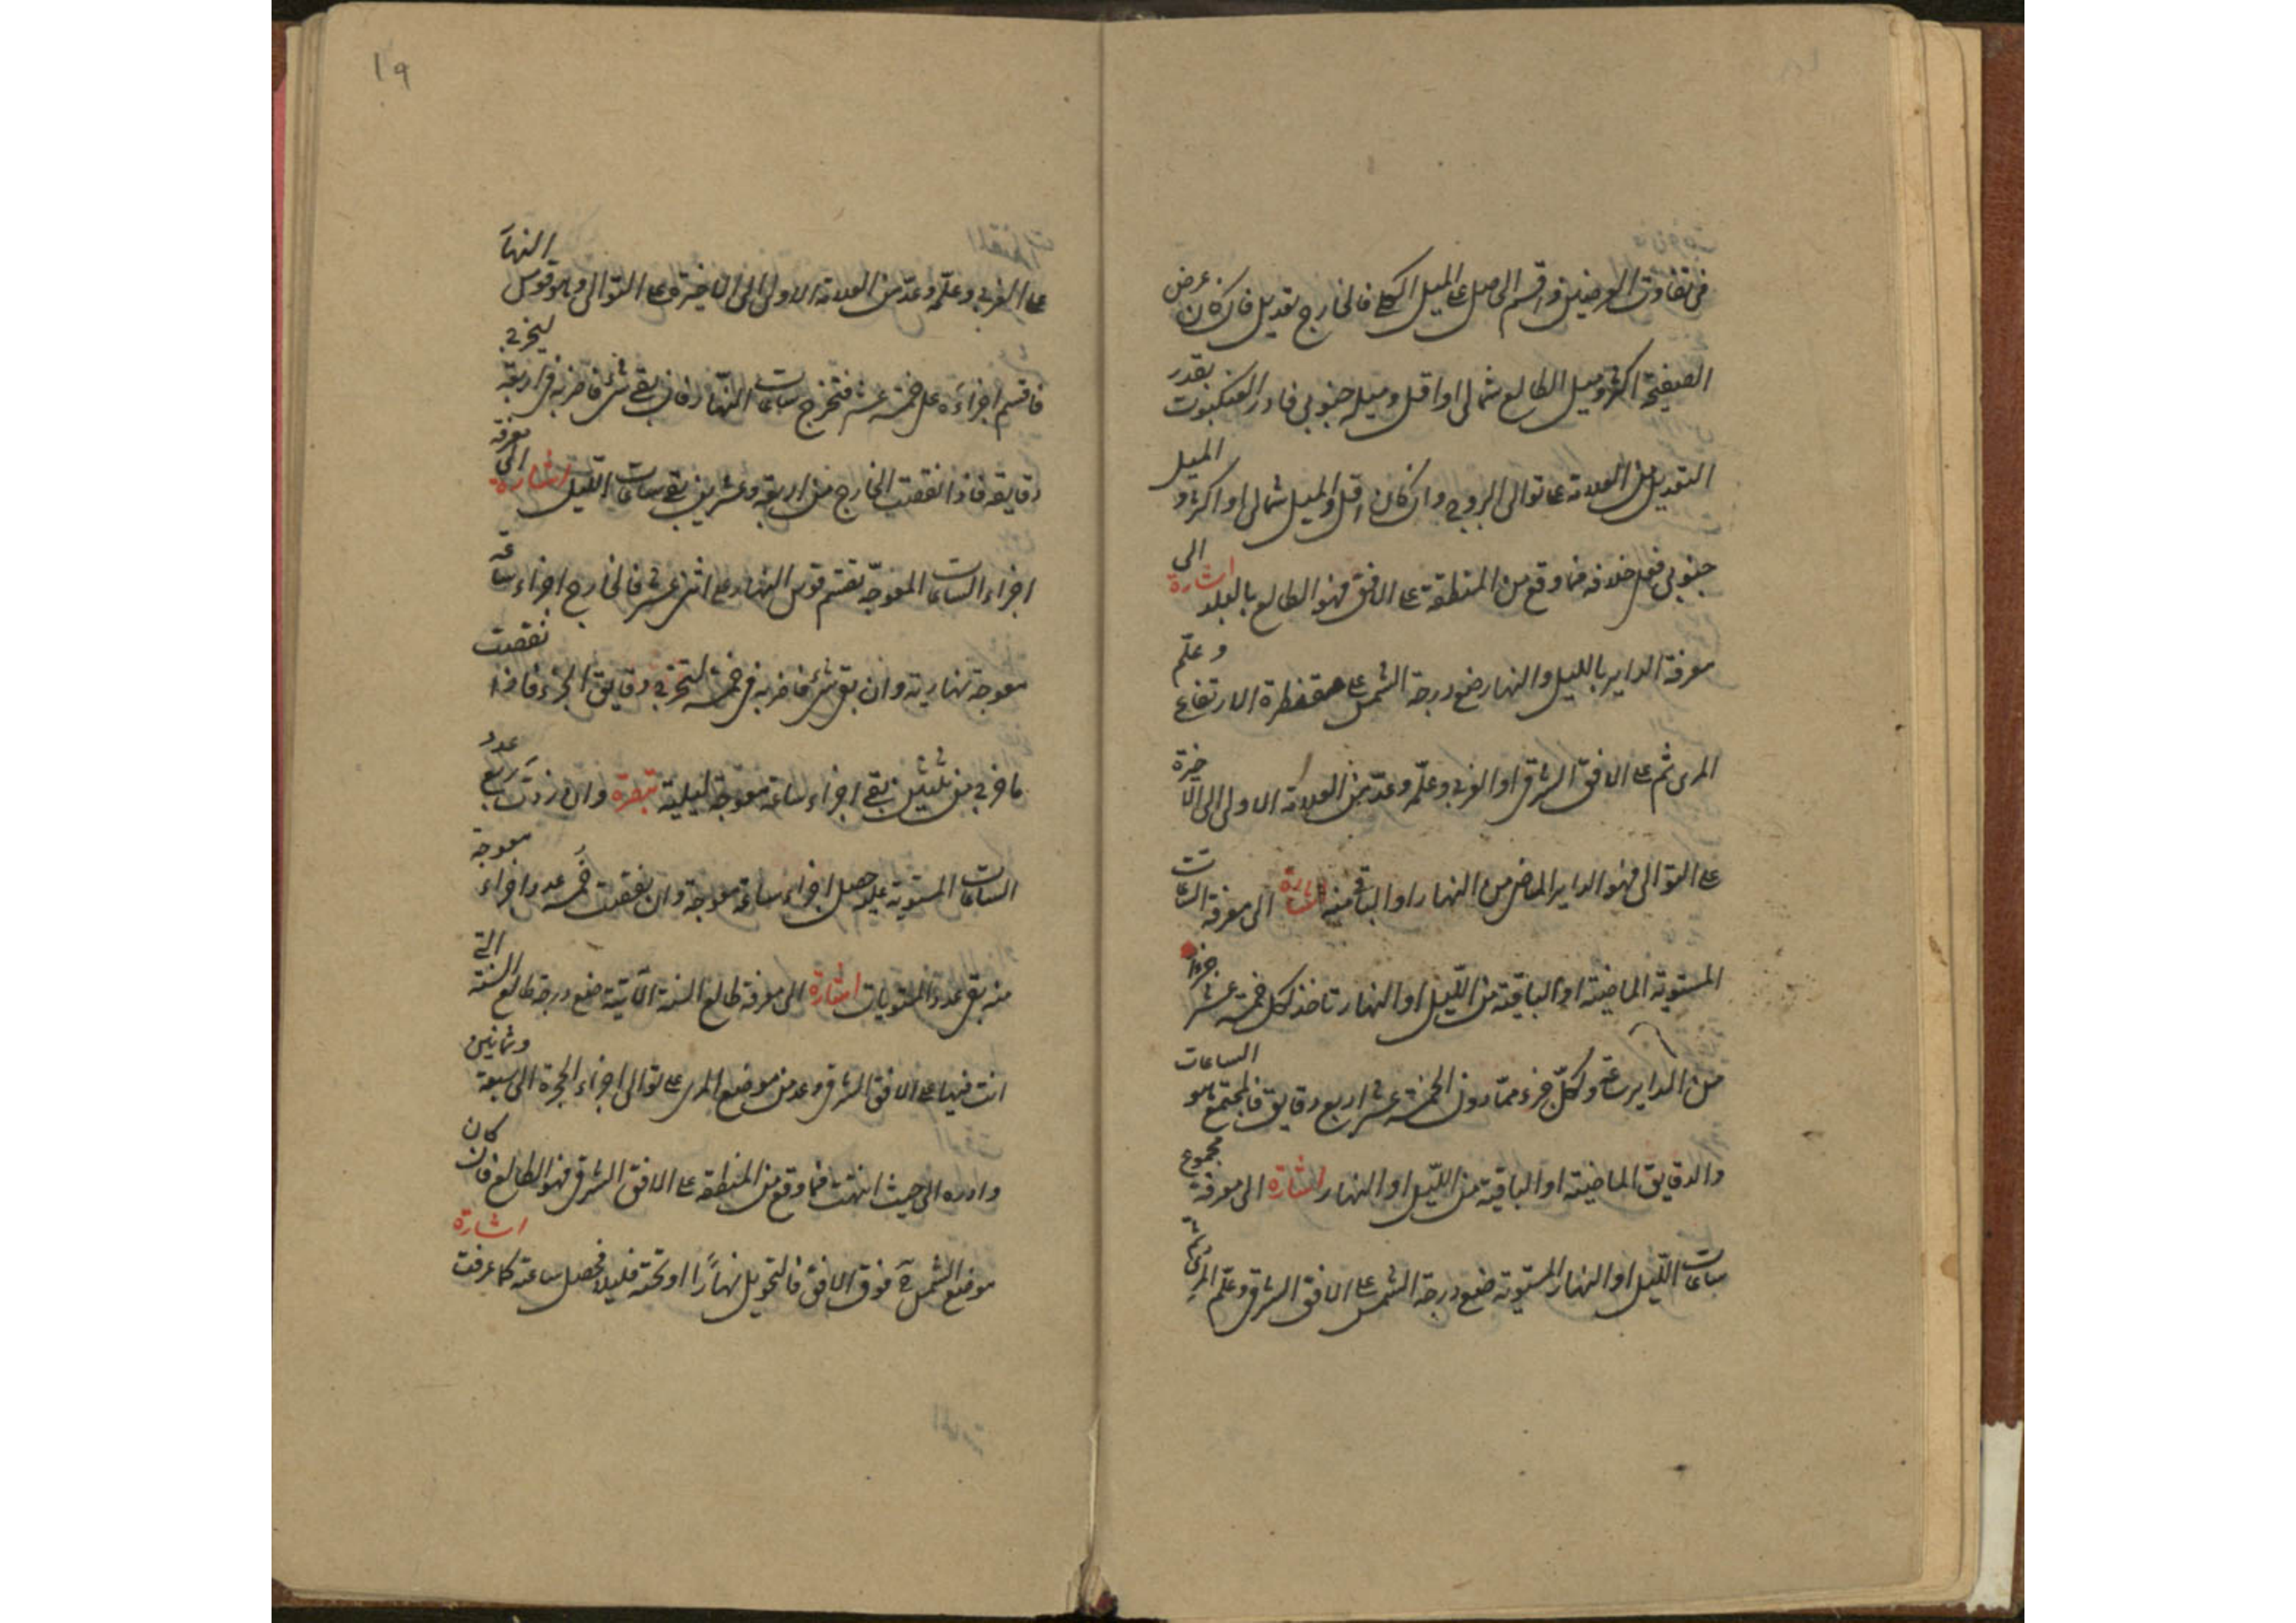 في تفاوت العرضين واقسم الحاصل على الميل الكلي فالخارج تعديل فان كان عرض
الصفيحة اكثر وميل الطالع شمالي او اقل وميله جنوبي فادر العنكبوت بقدر
التعديل من العلامة على توالي البروج وان كان اقل والميل شمالي او اكثر والميل
جنوبي فعلى خلافه فما وقع من المنطقة على الافق فهو الطالع بالبلد اشارة الى
معرفة الداير بالليل والنهار ضع درجة الشمس على مقنطرة الارتفاع وعلّم
المرى ثم على الافق الشرقي او الغربي وعلّمه وعدّ من العلامة الاولى الى الاخيرة
على التوالي فهو الداير الماضي من النهار او الباقي منه اشارة الى معرفة الساعات
المستوية الماضية او الباقية من اللّيل او النهار تاخذ لكل خمسة عشر جزءا
من الداير ساعة ولكلّ جزء ممّا دون الخمسة عشر اربع دقايق فالمجتمع هو الساعات
والدقايق الماضية او الباقية من اللّيل او النهار اشارة الى معرفة مجموع
ساعات اللّيل او النهار المستوية ضع درجة الشمس على الافق الشرقي وعلّم المرى ثم
١٩
على الغربي وعلّمه وعدّ من العلامة الاولى الى الاخيرة على التوالي وهو قوس النهار
فاقسم اجزاءه على خمسة عشر فتخرج ساعات النهار فان بقي شئ فاضربه في اربعة ليخرج
دقايقه فاذا نقصت الخارج من اربعة وعشرين بقي ساعات اللّيل اشارة الى معرفة
اجزاء الساعات المعوجّة تقسم قوس النهار على اثنى عشر فالخارج اجزاء ساعة
معوجة نهارية وان بقي شئ فاضربه في خمسة لتخرج دقايق الجزء فاذا نقصت
ما خرج من ثلثين بقي اجزاء ساعة معوجة ليلية تبصرة وان زدت ربع عدد
الساعات المستوية عليه حصل اجزاء ساعة معوجة وان نقصت خمس عدد اجزاء معوجة
منه بقي عدد المستويات اشارة الى معرفة طالع السنة الآتية ضع درجة طالع السنة التي
انت فيها على الافق الشرقي وعد من موضع المرى على توالي اجزاء الحجرة الى سبعة وثمانين
وادره الى حيث انتهت فما وقع من المنطقة على الافق الشرقي فهو الطالع فان كان
موضع الشمس ح فوق الافق فالتحويل نهارًا او تحته فليلا فحصل ساعته كما عرفت اشارة